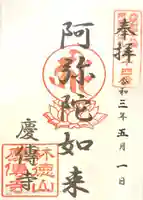 奉拝
令和三年五月一日
阿弥陀如来
慶傳寺